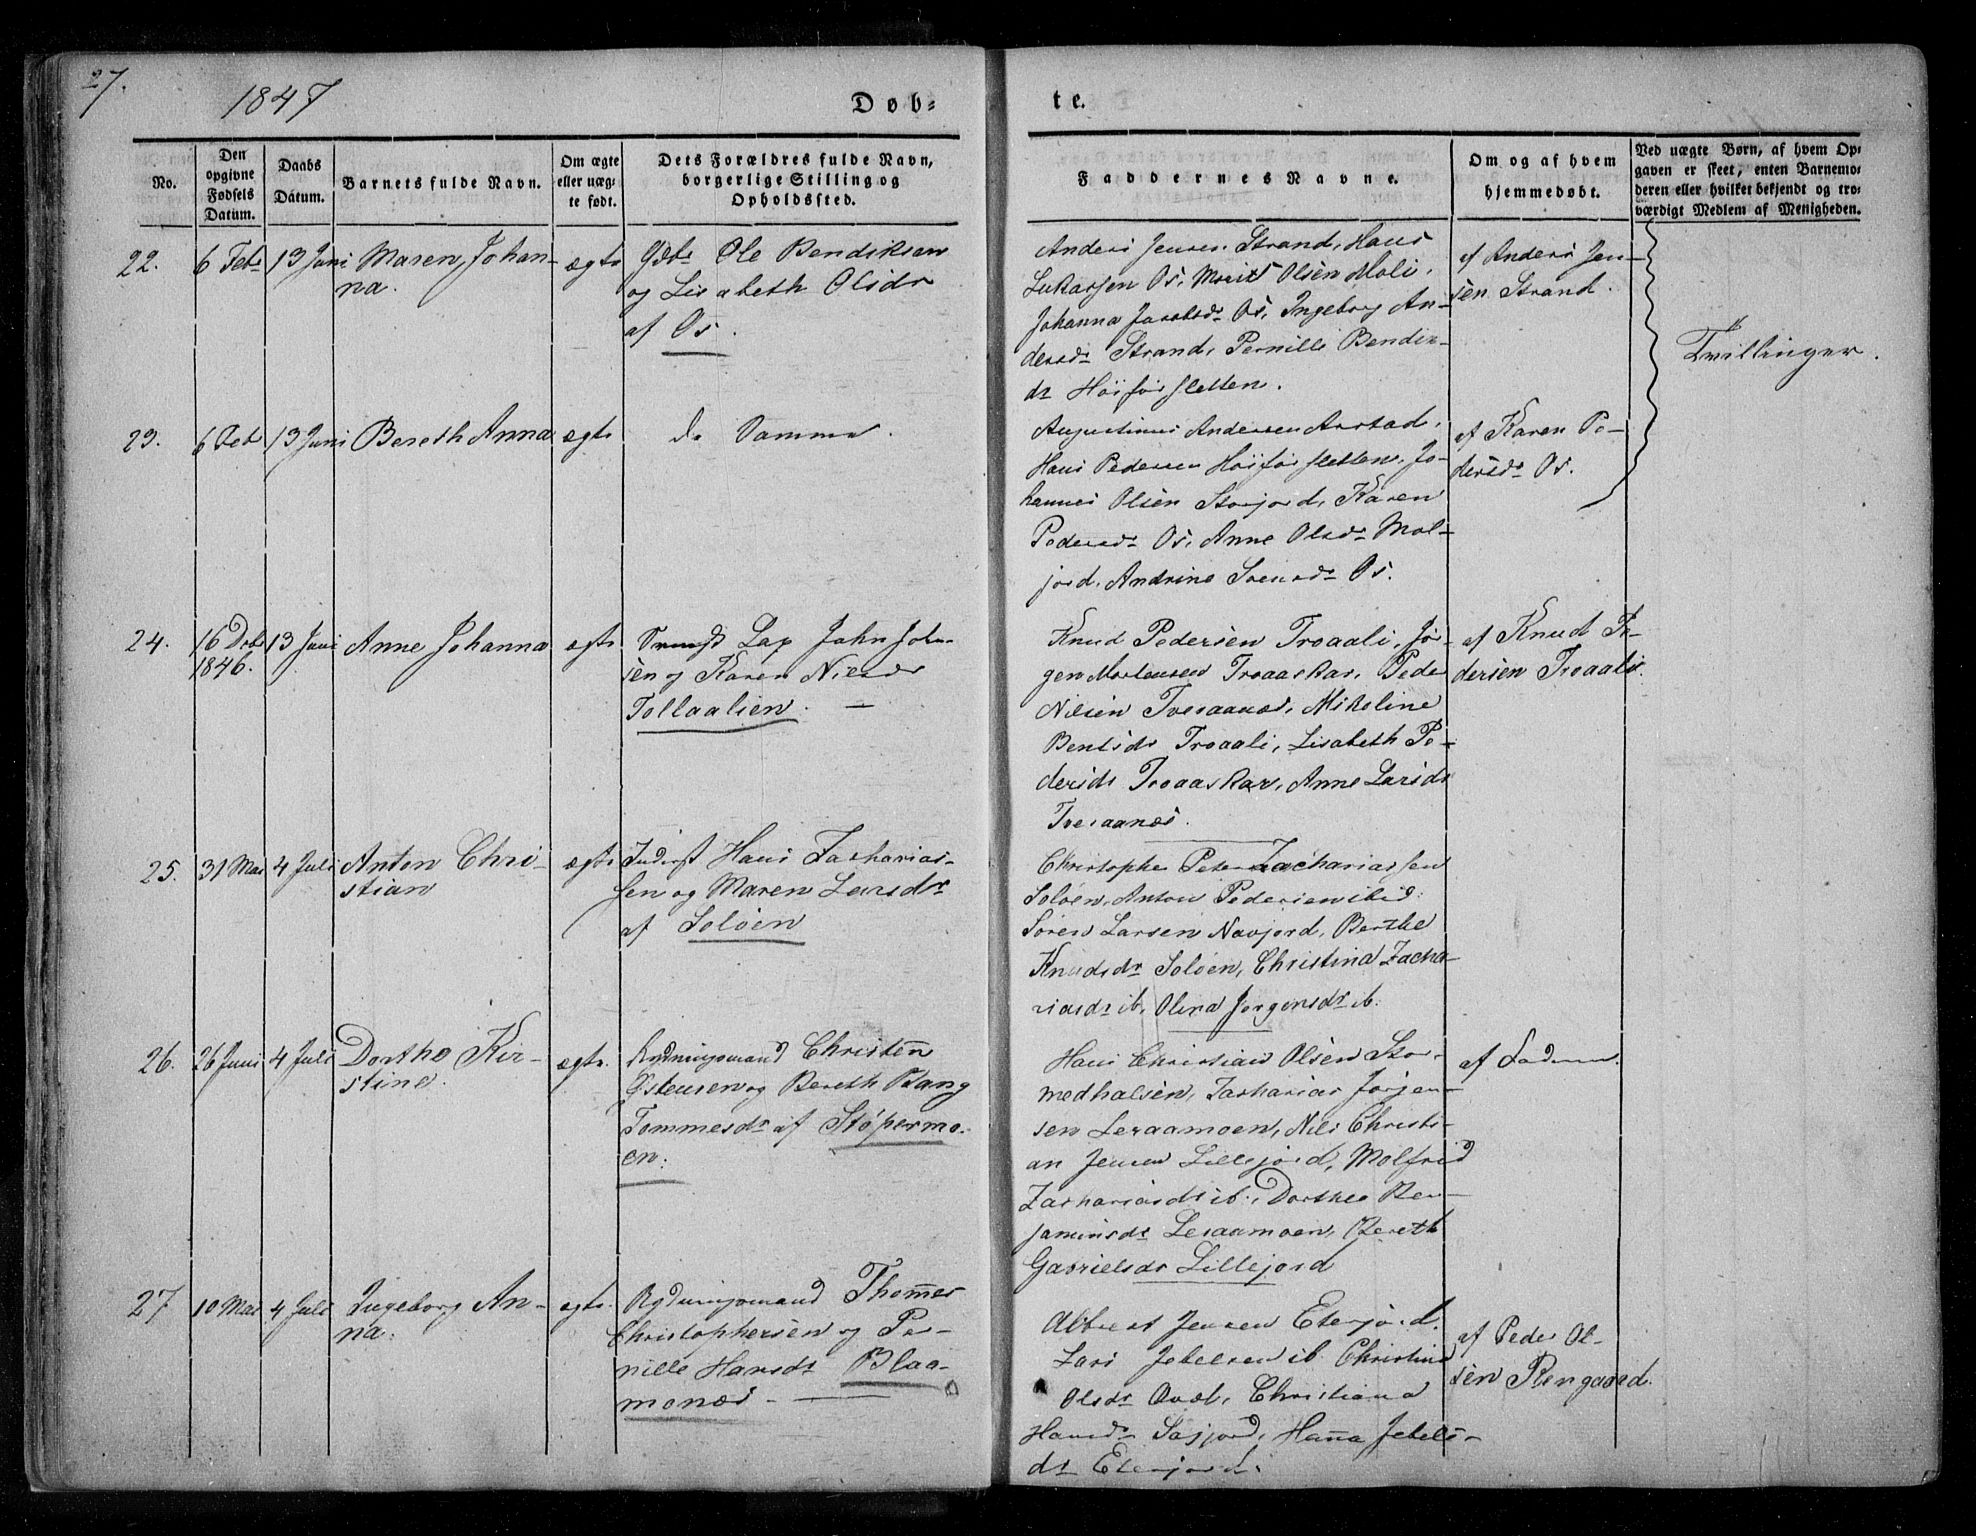 27.
1847
Døb-
te.
No.
Den opgivne Fødsels Datum.
Daabs Datum.
Barnets fulde Navn.
Om ægte eller uæg-
te født.
Dets Forældres fulde Navn,
borgerlige Stilling og
Opholdssted.
Faddernes Navne.
Om og af hvem
hjemmedøbt.
Ved uægte Børn, af hvem Op-
gaven er skeet, enten Barnemo-
deren eller hvilket bekjendt og tro-
værdigt Medlem af Menigheden.
22. 6 Feb 13 Juni Maren Johan-
na.
ægte
Gdbr Ole Bendiksen
og Lisabeth Olsdr
af Os.
Anders Jensen Strand, Hans
Lukassen Os, Morits Olsen Moli,
Johanna Jacobsdr Os, Ingeborg An-
dersdr Strand, Pernille Bendix-
dr Høiforsletten.
af Anders Jen-
sen Strand.
Tvillinger.
23. 6 Feb 13 Juni Bereth Anna
ægte
de Samme.
Augustinus Andersen Aastad,
Hans Pedersen Høiforsletten, Jo-
hannes Olsen Storjord, Karen
Pedersdr Os, Anne Olsdr Mol-
jord, Andrine Svensdr Os.
af Karen Pe-
dersdr Os.
24. 16 Dcbr
1846.
13 Juni
Anne Johanna
ægte
Lap John John-
sen og Karen Nilsdr
Tollaalien.
Knud Pedersen Troaali, Jør-
gen Mortensen Troaaskar, Peder
Nilsen Tveraanæs, Mikeline
Bentsdr Troaali, Lisabeth Pe-
dersdr Troaaskar, Anne Larsdr
Tveraanæs.
af Knud Pe-
dersen Troaali.
25. 31 Mai 4 Juli Anton Chri-
stian
ægte
Inderst Hans Zacharias-
sen og Maren Larsdr
af Soløen
Christopher Peter Zachariassen
Soløen, Anton Pedersen ibid:
Søren Larsen Navjord, Berthe
Knudsdr Soløen, Christina Zacha-
riasdr ib, Olena Jørgensdr ib.
26. 26 Juni 4 Juli Dorthe Kir-
stine.
ægte.
Rydningsmand Christen
Østensen og Bereth Bang
Tommesdr af Støpermo-
en.
Hans Christian Olsen Stor-
medhalsen, Zacharias Jørgen-
sen Leraamoen, Nils Christi-
an Jensen Lillejord, Molfrid
Zachariasdr ib., Dorthea Ben-
jaminsdr Leraamoen, Bereth
Gabrielsdr Lillejord
af Faderen.
27 10 Mai 4 Juli Ingeborg An-
na.
ægte.
Rydningsmand Thommes
Christophersen og Per-
nille Hansdr Blaa-
monæs
Albert Jensen Eterjord,
Lars Jebelsen ib. Christina
Olsdr Qval, Christiana
Hansdr Saxjord, Hanna Jebels-
dr Eterjord.
af Peder Ol-
sen Rengaard.